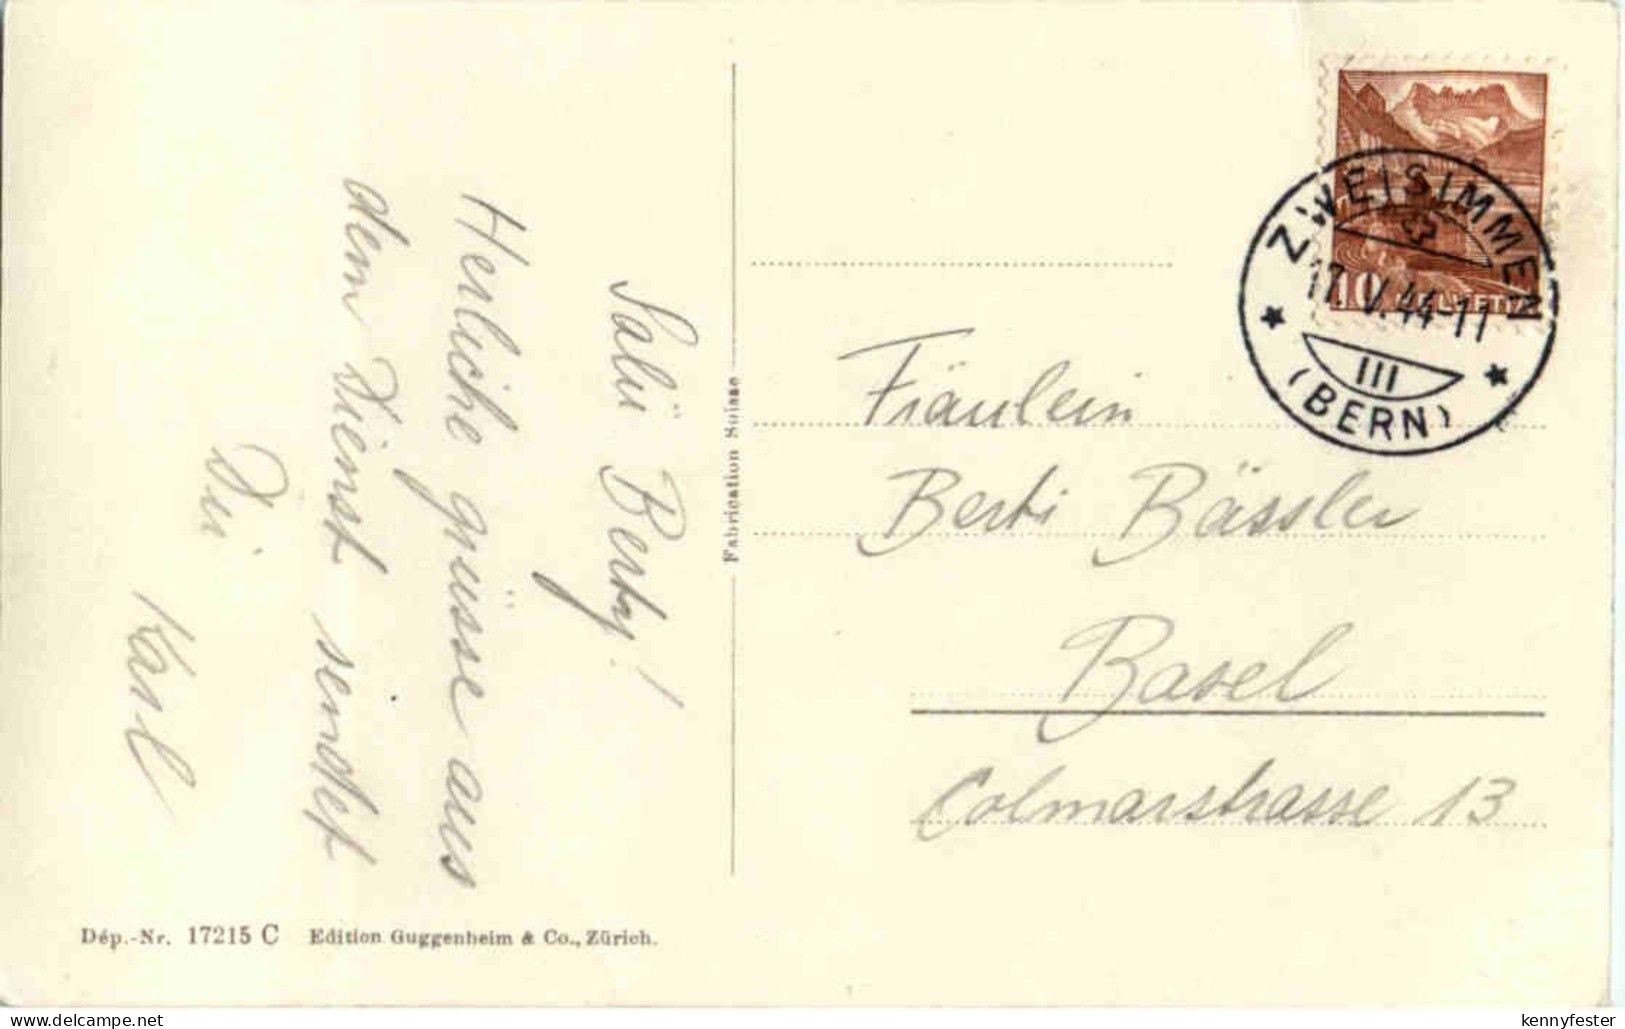 Salü Berty!
Herliche grüsse aus
dem Dienst sendet
Dir
Karl
Fabrication Suisse
Dép.-Nr. 17215 C Edition Guggenheim & Co., Zürich.
10 HELVETIA
ZWEISIMMEN
17. V. 44-11
III
(BERN)
Fräulein
Berti Bässler
Basel
Colmarstrasse 13
www.delcampe.net
kennyfester